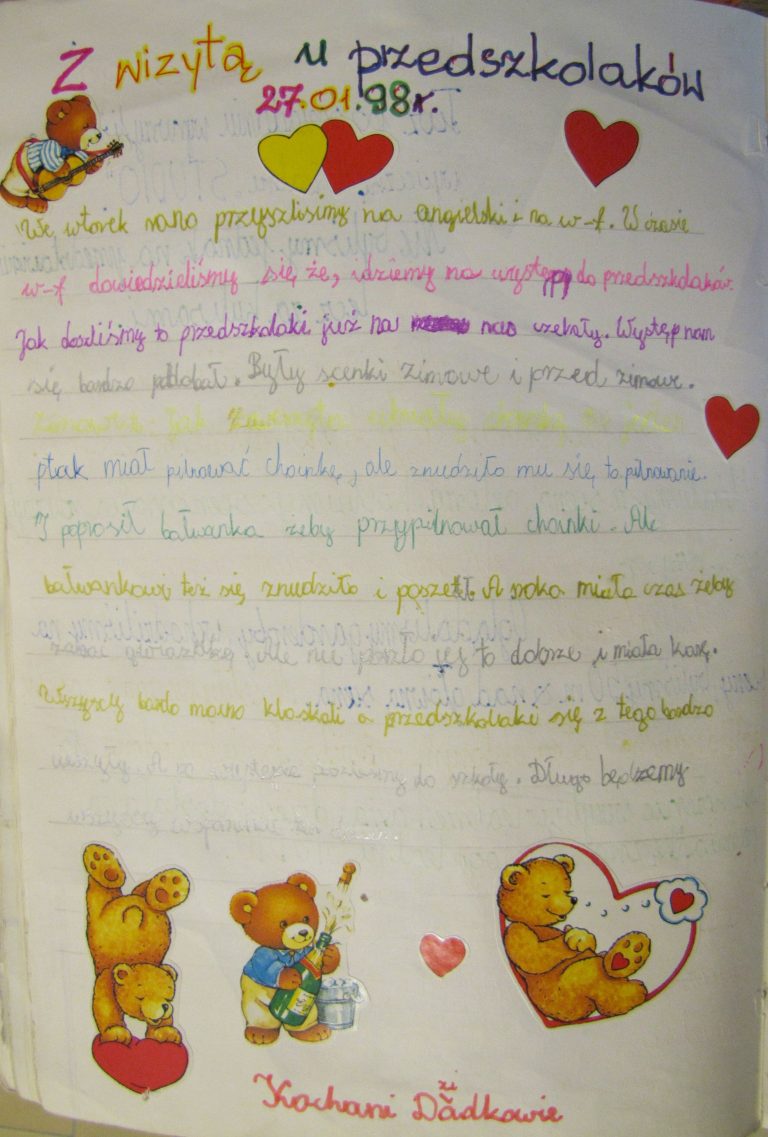 Z wizytą u przedszkolaków
27.01.98r.
We wtorek rano przyszlisimy na angielski i na w-f. W czasie
w-f dowiedzieliśmy się że, idziemy na występ do przedszkolaków.
Jak doszliśmy to przedszkolaki już na nas czekały. Występ nam
się bardzo podobał. Były scenki zimowe i przed zimowe.
Jak
ptak miał pilnować choinkę, ale znudziło mu się to pilnowanie.
I poprosił bałwanka żeby przypilnował choinki. Ale
bałwankowi też się znudziło i poszedł. A sroka miała czas żeby
zabrać gwiazdkę, Ale nie poszło jej to dobrze i miała karę.
Wszyscy bardo mocno klaskali a przedszkolaki się z tego bardzo
do szkoły. Długo będziemy
wszyscy wspominać
Kochani Dziadkowie